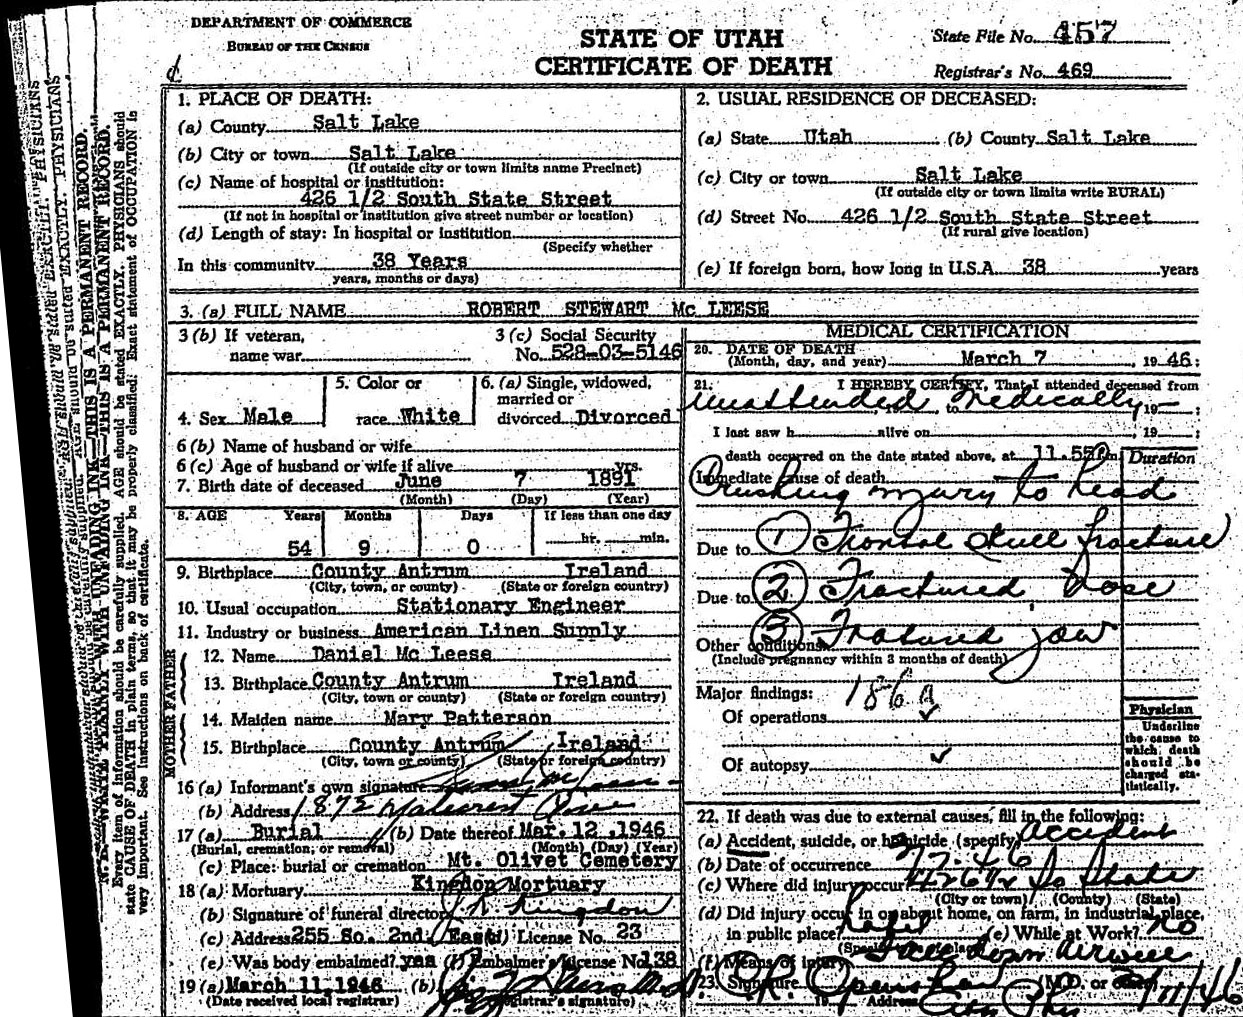 DEPARTMENT OF COMMERCE
BUREAU OF THE CENSUS
STATE OF UTAH
CERTIFICATE OF DEATH
State File No. 457
Registrar's No. 469
1. PLACE OF DEATH:
(a) County Salt Lake
(b) City or town Salt Lake
(If outside city or town limits name Precinct)
(c) Name of hospital or institution:
426 1/2 South State Street
(If not in hospital or institution give street number or location)
(d) Length of stay: In hospital or institution
(Specify whether
In this community 38 Years
years, months or days)
2. USUAL RESIDENCE OF DECEASED:
(a) State Utah (b) County Salt Lake
(c) City or town Salt Lake
(If outside city or town limits write RURAL)
(d) Street No. 426 1/2 South State Street
(If rural give location)
(e) If foreign born, how long in U.S.A. 38 years
3. (a) FULL NAME ROBERT STEWART Mc LEESE
3 (b) If veteran,
name war
3 (c) Social Security
No. 528-03-5146
4. Sex Male
5. Color or
race White
6. (a) Single, widowed,
married or
divorced Divorced
6 (b) Name of husband or wife
6 (c) Age of husband or wife if alive yrs.
7. Birth date of deceased June 7 1891
(Month) (Day) (Year)
8. AGE Years Months Days If less than one day
54 9 0 hr. min.
9. Birthplace County Antrum Ireland
(City, town, or county) (State or foreign country)
10. Usual occupation Stationary Engineer
11. Industry or business American Linen Supply
FATHER
12. Name Daniel Mc Leese
13. Birthplace County Antrum Ireland
(City, town or county) (State or foreign country)
MOTHER
14. Maiden name Mary Patterson
15. Birthplace County Antrum Ireland
(City, town or county) (State or foreign country)
16 (a) Informant's own signature
(b) Address 1872
17 (a) Burial (b) Date thereof Mar. 12, 1946
(Burial, cremation, or removal) (Month) (Day) (Year)
(c) Place: burial or cremation Mt. Olivet Cemetery
18 (a) Mortuary Kingdon Mortuary
(b) Signature of funeral director Kingdon
(c) Address 255 So. 2nd. East (d) License No. 23
(e) Was body embalmed? yes (f) Embalmer's License No. 138
19 (a) March 11, 1946 (b)
(Date received local registrar) (Registrar's signature)
MEDICAL CERTIFICATION
20. DATE OF DEATH
(Month, day, and year) March 7, 1946:
21. I HEREBY CERTIFY, That I attended deceased from
Unattended, to Medically, 19 ;
I last saw h alive on , 19 ;
death occurred on the date stated above, at 11.55P m
Duration
Immediate cause of death
Crushing injury to head
Due to (1) Frontal skull fracture
Due to (2) Fractured nose
Other conditions (3) Fractured jaw
(Include pregnancy within 3 months of death)
Major findings: 186a
Of operations
Of autopsy
Physician
Underline
the cause to
which death
should be
charged sta-
tistically.
22. If death was due to external causes, fill in the following:
(a) Accident, suicide, or homicide (specify) accident
(b) Date of occurrence 3-7-46
(c) Where did injury occur? 426 1/2 So State
(City or town) (County) (State)
(d) Did injury occur in or about home, on farm, in industrial place,
in public place? Hotel (e) While at Work? No
(Specify type of place)
(f) Means of injury Fall down airwell
23. Signature M.D. or
Address City Phy
N. B.—WRITE PLAINLY WITH UNFADING INK—THIS IS A PERMANENT RECORD.
Every item of information should be carefully supplied. AGE should be stated EXACTLY. PHYSICIANS should
state CAUSE OF DEATH in plain terms, so that it may be properly classified. Exact statement of OCCUPATION is
very important. See instructions on back of certificate.